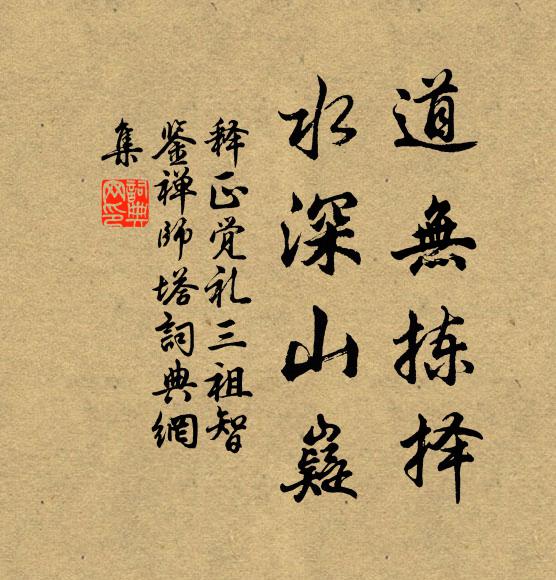 道無拣择
水深山嶷
释正觉礼三祖智
鉴禅师塔詞典網
集
詞典
网印